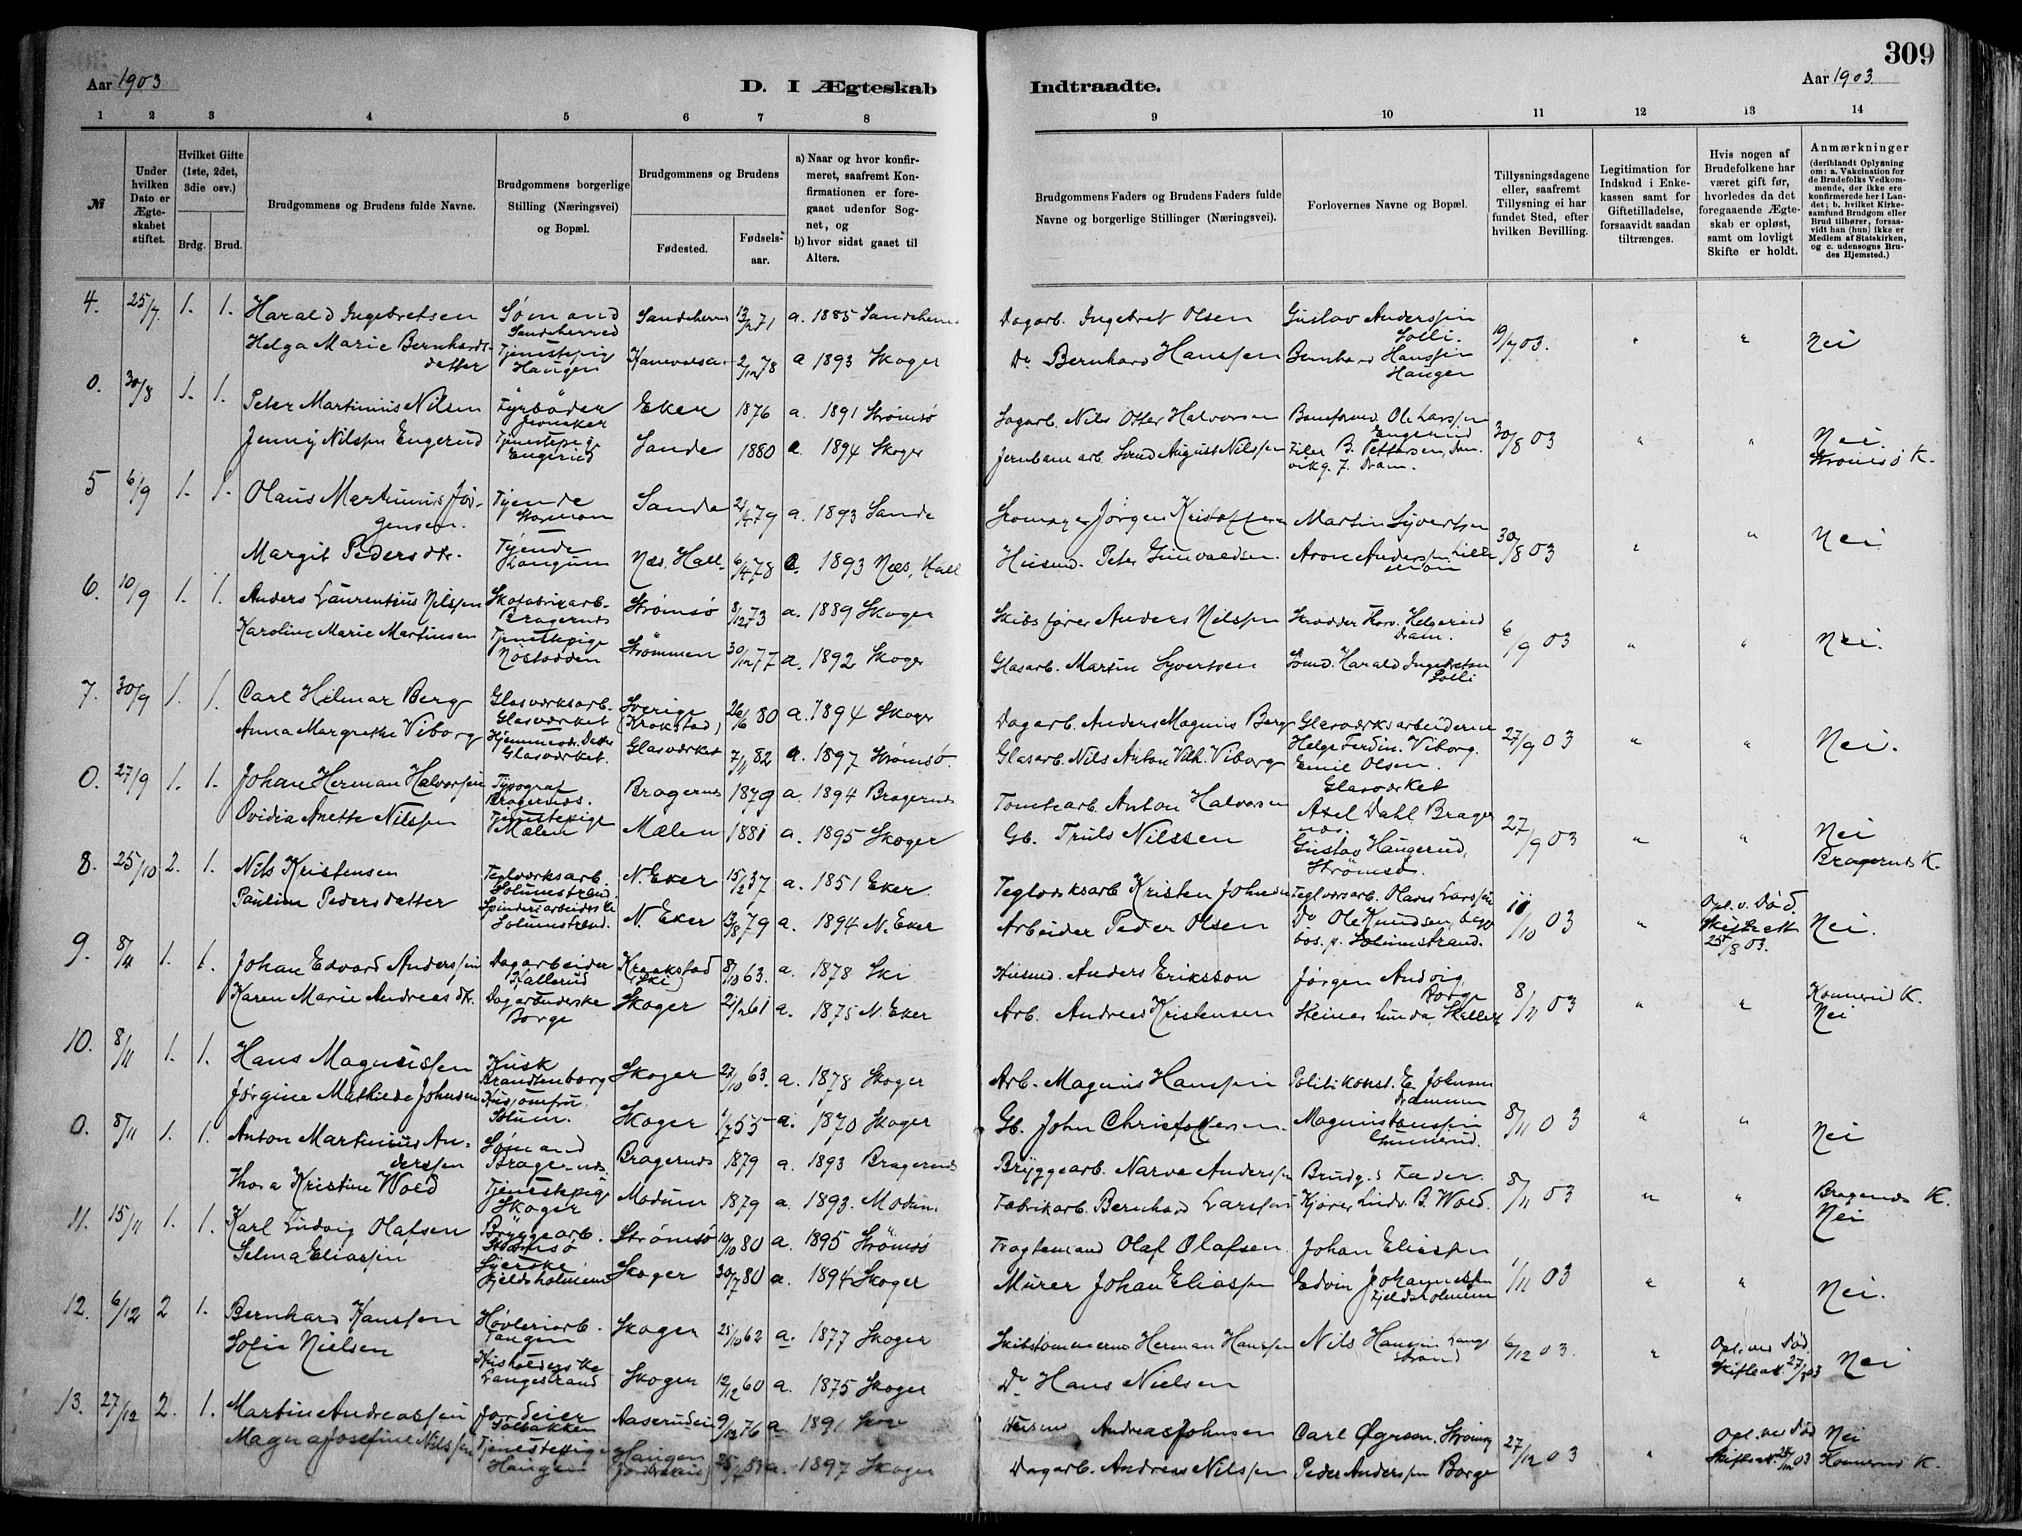 309
Aar 1903
D. I Ægteskab
Indtraadte.
Aar 1903
1 2 3 4 5 6 7 8 9 10 11 12 13 14
№
Under hvilken Dato er Ægteskabet stiftet.
Hvilket Gifte (1ste, 2det, 3die osv.)
Brdg. Brud.
Brudgommens og Brudens fulde Navne.
Brudgommens borgerlige Stilling (Næringsvei) og Bopæl.
Brudgommens og Brudens
Fødested. Fødselsaar.
a) Naar og hvor konfirmeret, saafremt Konfirmationen er foregaaet udenfor Sognet, og
b) hvor sidst gaaet til Alters.
Brudgommens Faders og Brudens Faders fulde Navne og borgerlige Stillinger (Næringsvei).
Forlovernes Navne og Bopæl.
Tillysningsdagene eller, saafremt Tillysning ei har fundet Sted, efter hvilken Bevilling.
Legitimation for Indskud i Enkekassen samt for Giftetilladelse, forsaavidt saadan tiltrænges.
Hvis nogen af Brudefolkene har været gift før, hvorledes da det foregaaende Ægteskab er opløst, samt om lovligt Skifte er holdt.
Anmærkninger (deriblandt Oplysning om: a. Vakcination for de Brudefolks Vedkommende, der ikke ere konfirmerede her i Landet; b. hvilket Kirkesamfund Brudgom eller Brud tilhører, forsaavidt han (hun) ikke er Medlem af Statskirken, og c. udensogns Brudes Hjemsted.)
4. 25/7 1. 1. Harald Ingebretsen Sømand Sandeherred 13/2 71 a. 1885 Sandeherred Dagarb. Ingebret Olsen Gustav Anderssen Solli. 19/7 03. " " Nei
Helga Marie Bernhardsdatter Tjenestepig Haugen 2/12 78 a 1893 Skoger Do Bernhard Hanssen Bernhard Hanssen Haugen
0. 30/8 1. 1. Peter Martinius Nilsen Fyrbøder Eker 1876 a. 1891 Strømsø Sagarb. Nils Otter Halvorsen Ole Larssen Engerud 30/8 03 " " Nei.
Jenny Nilssen Engerud Tjenestepige Engerud Sande 1880 a. 1894 Skoger Jernbanearb. August Nilssen B. Pettersen, Dram. Strømsø K.
5 6/9 1. 1. Olaus Martinius Jørgensen. Tjende Sande 21/4 79 a. 1893 Sande Skomager Jørgen Kristoffersen Martin Syvertsen 30/8 03 " " Nei
Margit Pedersdtr. Tjende Næs. Hall. 6/4 78 a. 1893 Næs, Hall Husmd. Peter Gunvaldsen. Aron Anderssen
6. 10/9 1. 1. Anders Laurentius Nilssen Skofabrikarb. Bragernes Strømsø 8/12 73 a. 1889 Skoger Skibsfører Anders Nilssen Skrædder Helgerud Dram. 6/9 03 " " Nei.
Karoline Marie Martinsen Tjenestepige Nøstodden Strømmen 30/12 77 a. 1892 Skoger Glasarb. Martin Syvertsen Sømd. Harald Ingebretsen Solli
7. 30/9 1. 1. Carl Hilmar Berg Glasværksarb. Glasværket Sverige (Krokstad) 26/6 80 a. 1894 Skoger Dagarb. Anders Magnus Berg Glasværksarbeiderne 27/9 03 " " Nei.
Anna Margrethe Viborg Hjemmevær. Datter Glasværket. Glasværket 7/11 82 a. 1897 Strømsø Glasarb. Nils Anton Vilh. Viborg Helge Ferdin. Viborg. Emil Olsen. Glasværket
0. 27/9 1. 1. Johan Herman Halvorsen Typograf Bragernes. Bragernes 1879 a. 1894 Bragernes Tomtearb. Anton Halvorsen Axel Dahl Bragernes. 27/9 03 " " Nei
Ovidia Anette Nilssen Tjenestepige Mælen Mælen 1881 a. 1895 Skoger Gb. Truls Nilssen Gustav Haugerud, Strømsø. Bragernes K.
8. 25/10 2. 1. Nils Kristensen Teglværksarb. Solumstrand N. Eker 15/2 37 a. 1851 Eker Teglværksarb Kristen Johnsen Teglværsarb. Olaves Larssen 11/10 03 " Opl. v. Død. Skifteatt 25/8 03. Nei.
Pauline Pedersdatter Spinderiarbeiderske Solumstrand. N. Eker 13/8 79 a. 1894 N. Eker Arbeider Peder Olsen Do Ole Knudsen, begge bos. p. Solumstrand.
9. 8/11 1. 1. Johan Edvard Anderssen Dagarbeider Skallerud Kraakstad (Ski) 8/10 63. a. 1878 Ski Husmd. Anders Eriksson Jørgen Andvig, Borge 8/11 03 " " Konnerud K.
Karen Marie Andreasdtr. Dagarbeiderske Borge Skoger 21/2 61 a. 1875 N. Eker Arb. Andreas Kristensen Steinar Lunda, Skallerud Nei
10. 8/11 1. 1. Hans Magnussen Kusk Brandtenborg Skoger 27/10 63. a. 1878 Skoger Arb. Magnus Hanssen Politikonst. E. Johnsen Drammen 8/11 03 " " Nei
Jørgine Mathilde Johnsen Husjomfru. Solum. Skoger 1/7 55 a. 1870 Skoger Gb. John Christoffersen. Magnus Hanssen Gunnerud.
0. 8/11 1. 1. Anton Martinius Anderssen Sømand Bragernes. Bragernes 1879 a. 1893 Bragernes Bryggearb. Narve Anderssen Brudg.s Fader. 8/11 03 " " Bragernes K.
Thora Kristine Wold Tjenestepige Skoger Modum 1879 a. 1893. Modum. Fabrikarb. Bernhard Larssen Kjører Ludv. B. Wold. Nei
11. 15/11 1. 1. Karl Ludvig Olafsen Bryggearb. Strømsø Strømsø 19/10 80 a. 1895 Strømsø Fragtemand Olaf Olafsen. Johan Eliassen 1/11 03 " " Nei.
Selma Eliassen Syerske Fjeldsholmene Skoger 30/7 80 a. 1894 Skoger Murer Johan Eliassen Edvin Johannessen Fjeldsholmene
12. 6/12 2 1. Bernhard Hanssen Høvleriarb. Tangen Skoger 25/10 62 a. 1877 Skoger Skibstømmermd Herman Hanssen Nils Hanssen Langestrand 6/12 03. " Opl. ved Død. Skifteatt. Nei
Sofie Nielsen Husholderske Langestrand Skoger 12/12 60 a. 1875 Skoger Do Hans Nielsen
13. 27/12 2. 1. Martin Andreassen Jordeier Solbakken Aaserudeie 9/12 76 a. 1891 Skoger Husmd Andreas Johnsen Carl Øgrson. Strømsø 27/12 03 " Opl. ved Død Nei
Magna Josefine Nilssen Tjenestepige Haugen Haugen a. 1897 Skoger Dagarb. Andreas Nilssen Peder Anderssen Borge Skifteatt. Konnerud K.